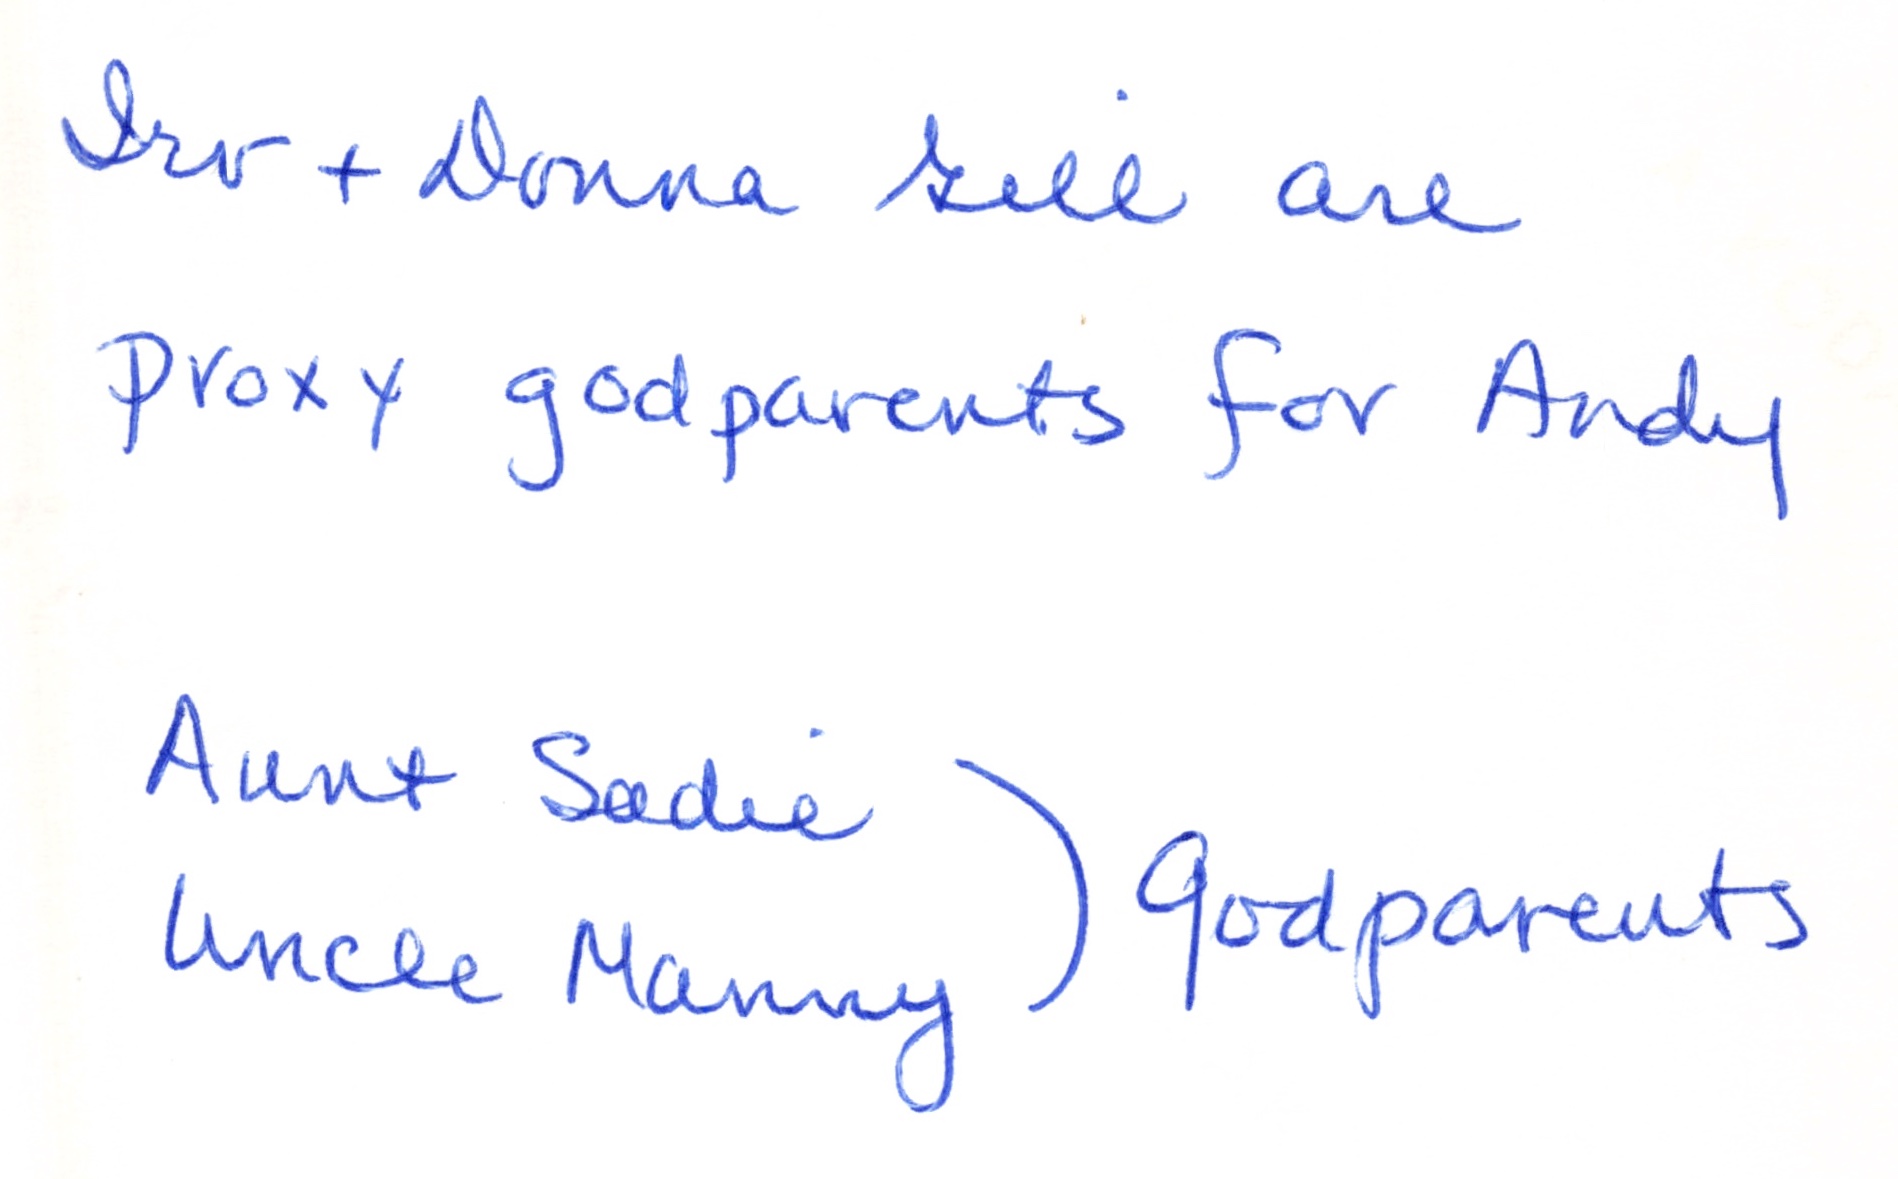 Irv + Donna Gill are
proxy godparents for Andy
Aunt Sadie
Uncle Manny ) Godparents